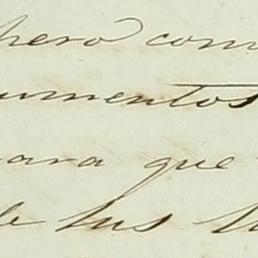 hero com
umentos
para que
de sus